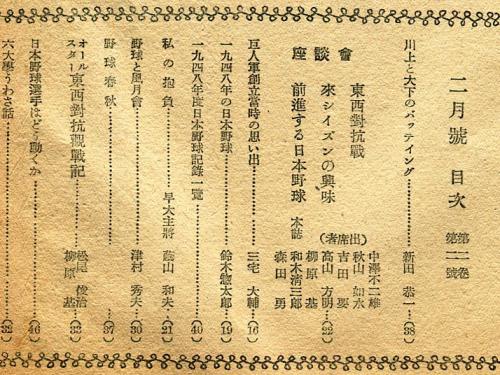 二月號 目次 第二卷 第二號
川上と大下のバッテイング 新田恭一 (38)
座談會
東西對抗戰
來シイズンの興味
前進する日本野球 本誌
(出席者)
中澤不二雄
秋山如水
吉田要
高山方明
柳原基
和木淸三郎
森田勇
(22)
巨人軍創立當時の思い出 三宅大輔 (16)
一九四八年の日本野球 鈴木惣太郎 (19)
一九四八年度日本野球記錄一覽 (40)
私の抱負 早大主將 蔭山和夫 (21)
野球と風月會 津村秀夫 (30)
野球春秋 (37)
オールスター東西對抗觀戰記 松尾俊治 柳原基 (32)
日本野球選手はどう動くか (46)
六大學うわさ話 (32)